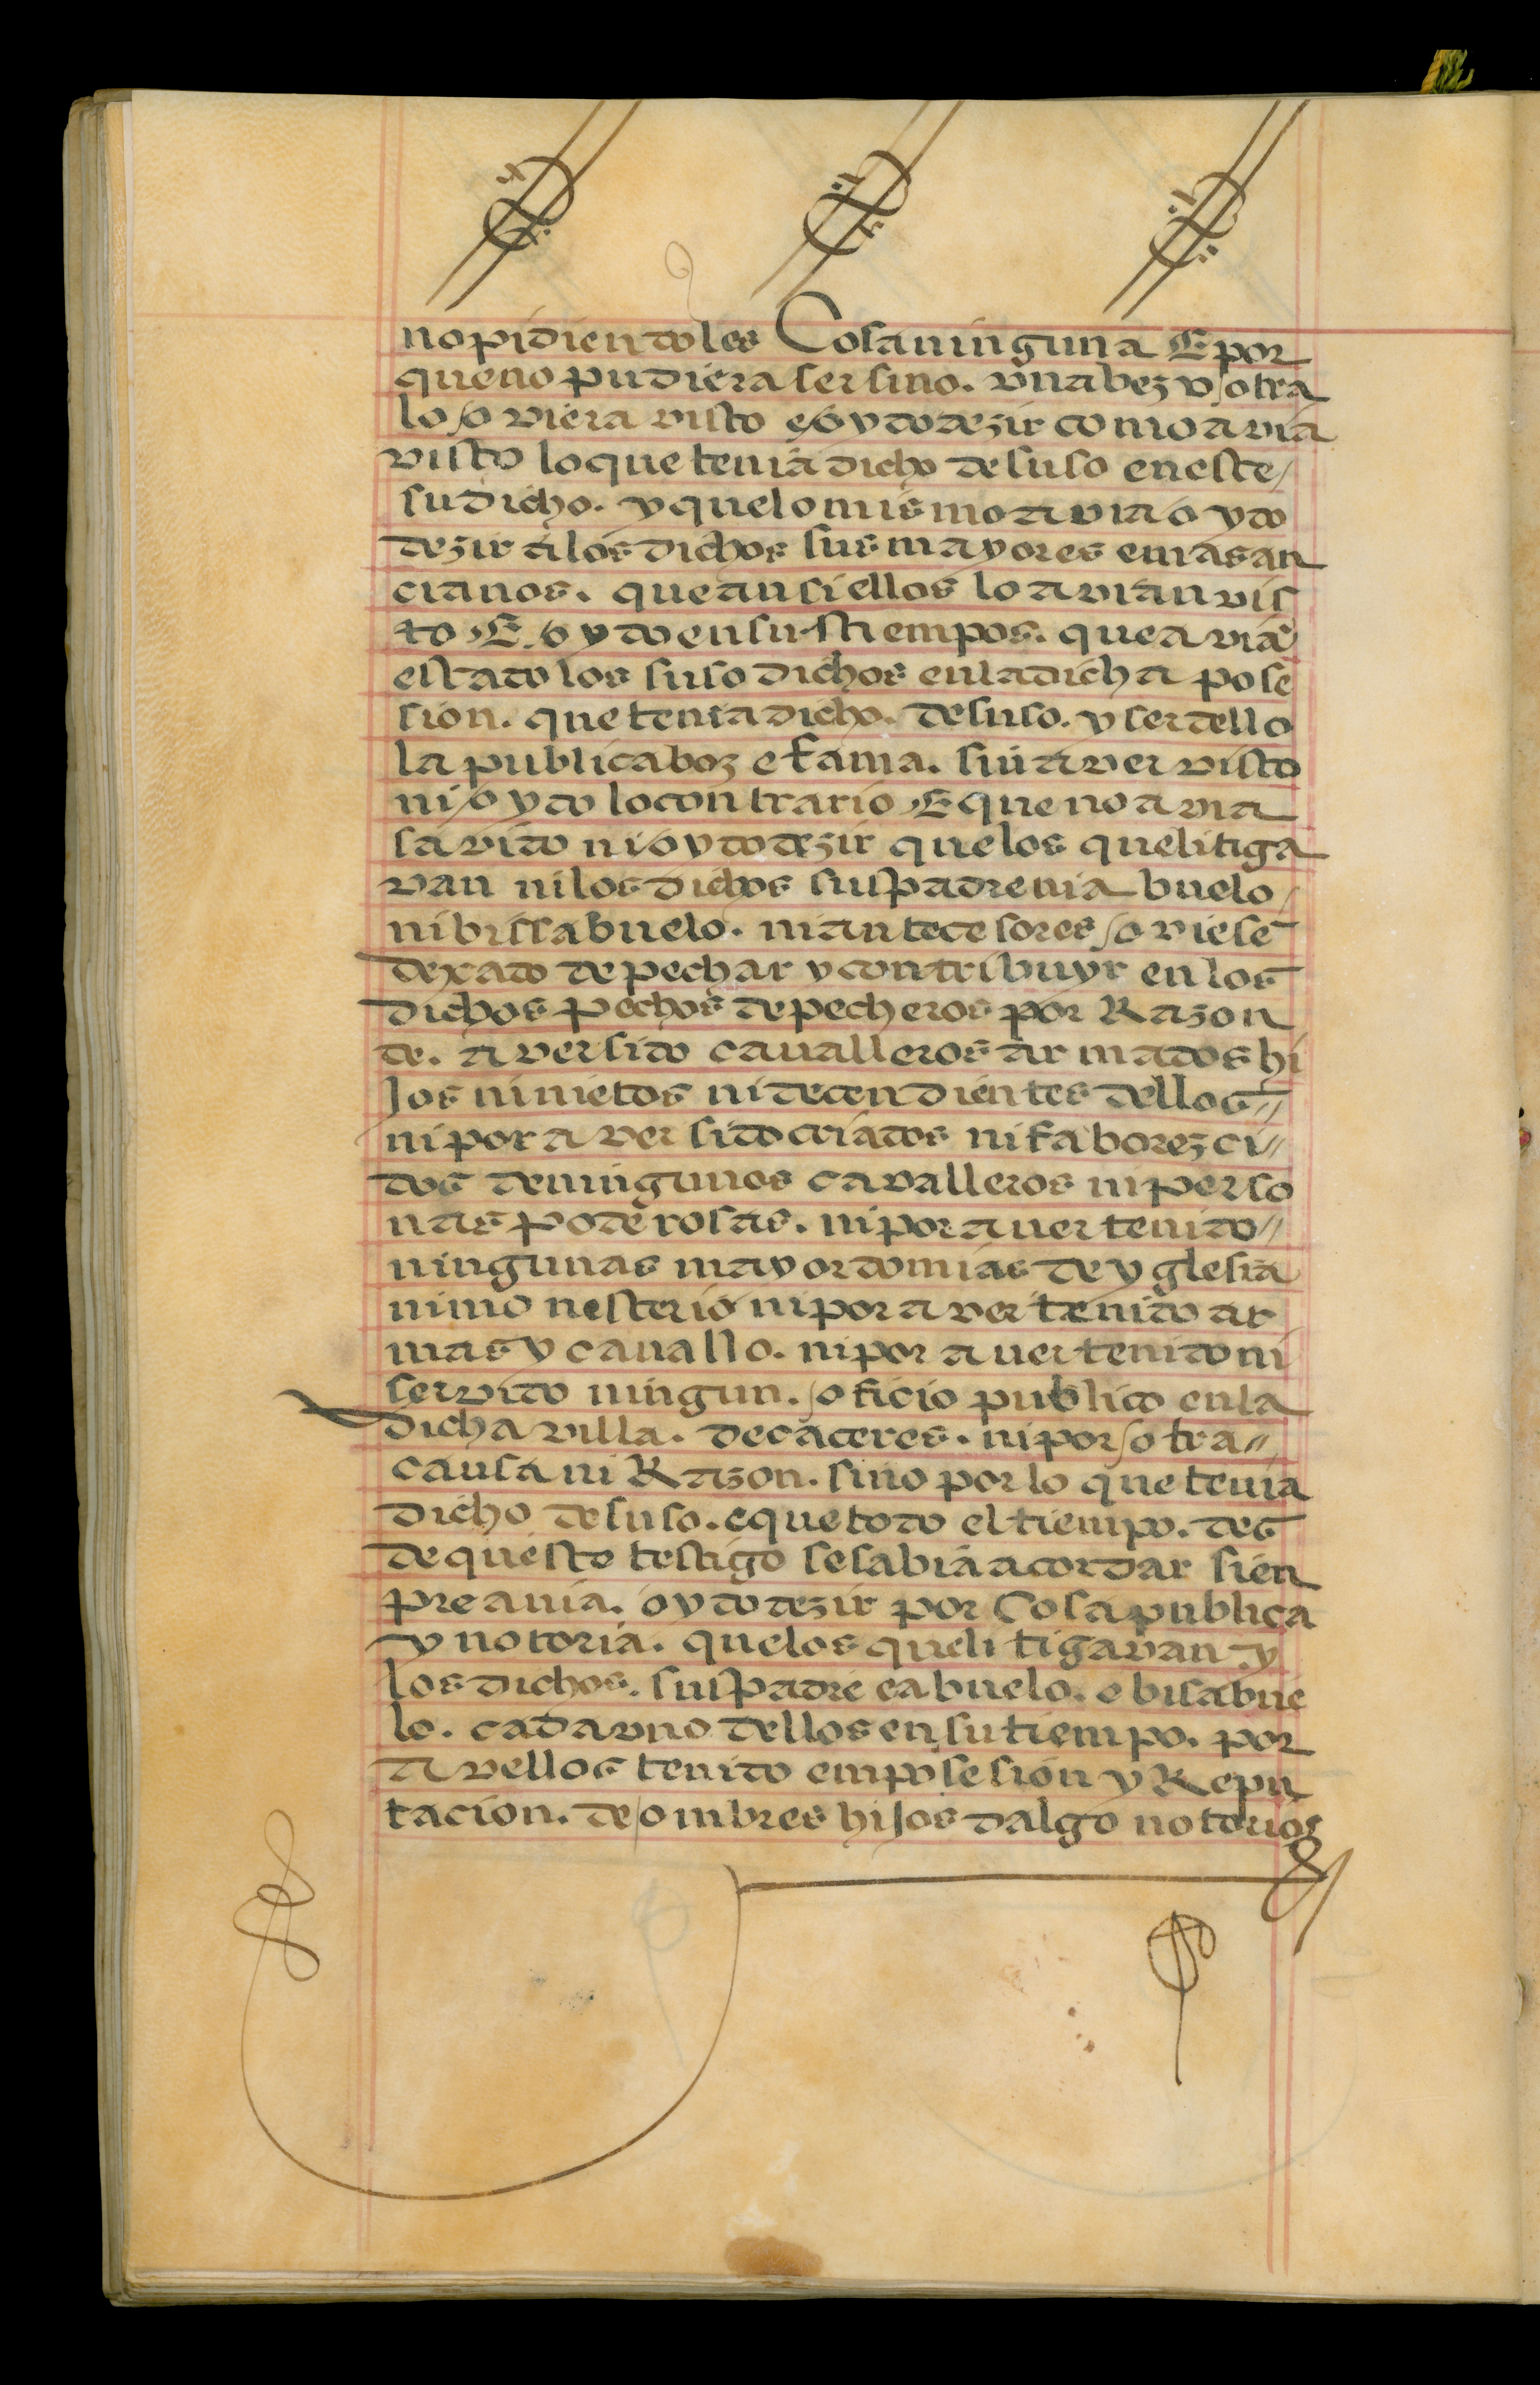 no pidiendoles Cosa ninguna E por
que no pudiera ser sino. vna bez v otra
lo oviera visto e oydo dezir como avia
visto lo que tenia dicho de suso en este
su dicho. y que lo mismo avia oydo
dezir a los dichos sus mayores e mas an
cianos. que ansi ellos lo avian vis
to E oydo en sus tiempos. que aviã
estado los suso dichos en la dicha pose
sion. que tenia dicho. de suso. y ser dello
la publica boz e fama. sin aver visto
ni oydo lo contrario E que no avia
savido ni oydo dezir que los que litiga
van ni los dichos su padre ni abuelo
ni bissabuelo. ni antecesores oviesē
dexado de pechar y contribuyr en los
dichos pechos de pecheros por Razon
de. aver sido cavalleros armados hi
jos ni nietos ni decendientes dellos
ni por aver sido criados ni faborezci
dos de ningunos cavalleros ni perso
nas poderosas. ni por auer tenido
ningunas mayordomias de yglesia
ni monesterio ni por aver tenido ar
mas y cauallo. ni por auer tenido ni
servido ningun. oficio publico en la
dicha villa. de caceres. ni por otra
causa ni Razon. sino por lo que tenia
dicho de suso. e que todo el tiempo. des
de queste testigo se sabia acordar sien
pre auia. oydo dezir por Cosa publica
y notoria. que los que litigavan y
los dichos. su padre e abuelo. e bisabue
lo. cada vno dellos en su tiempo. por
avellos tenido em posesion y Repu
tacion. de ombres hijos dalgo notorios